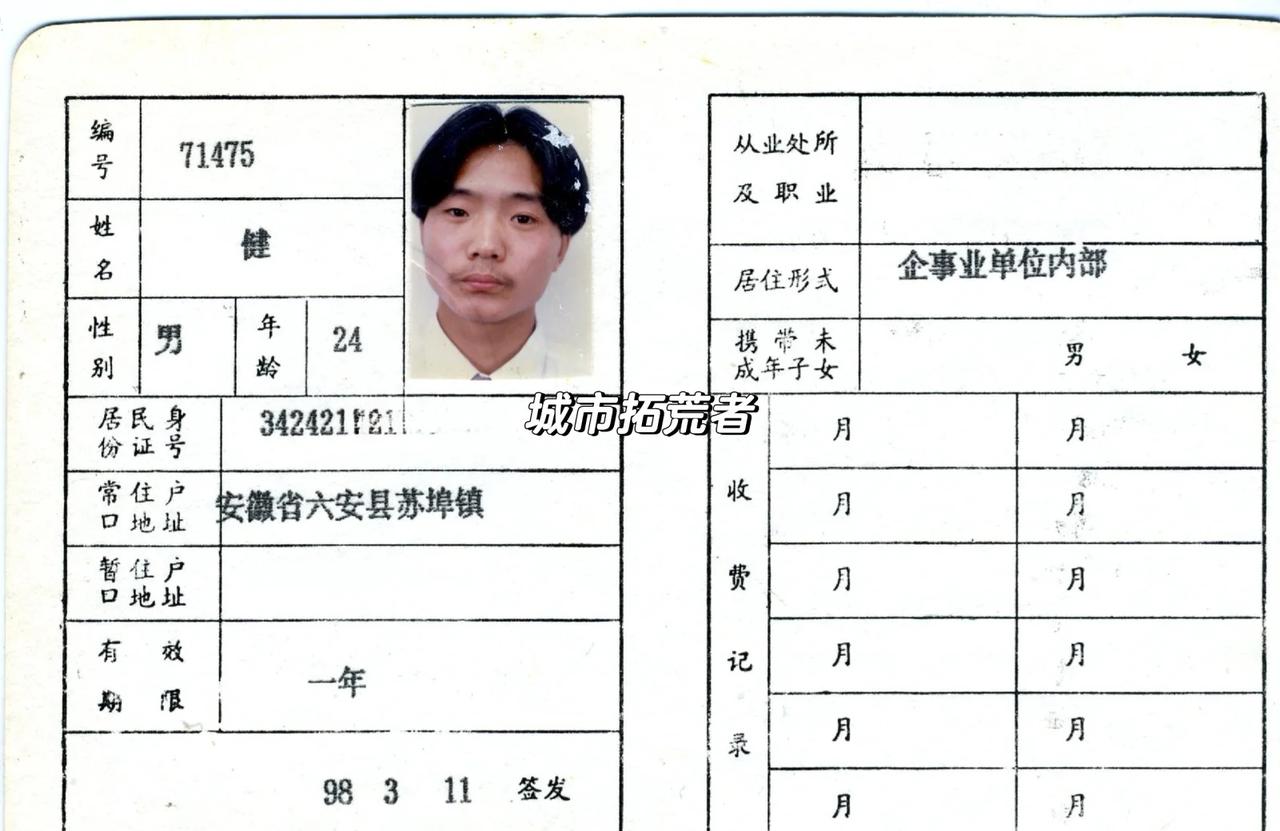 编号 71475
姓名 健
性别 男 年龄 24
居民身份证号 342421
常住户口地址 安徽省六安县苏埠镇
暂住户口地址
有效期限 一年
98 3 11 签发
城市拓荒者
从业处所及职业
居住形式 企事业单位内部
携带未成年子女 男 女
收费记录
月 月
月 月
月 月
月 月
月 月
月 月